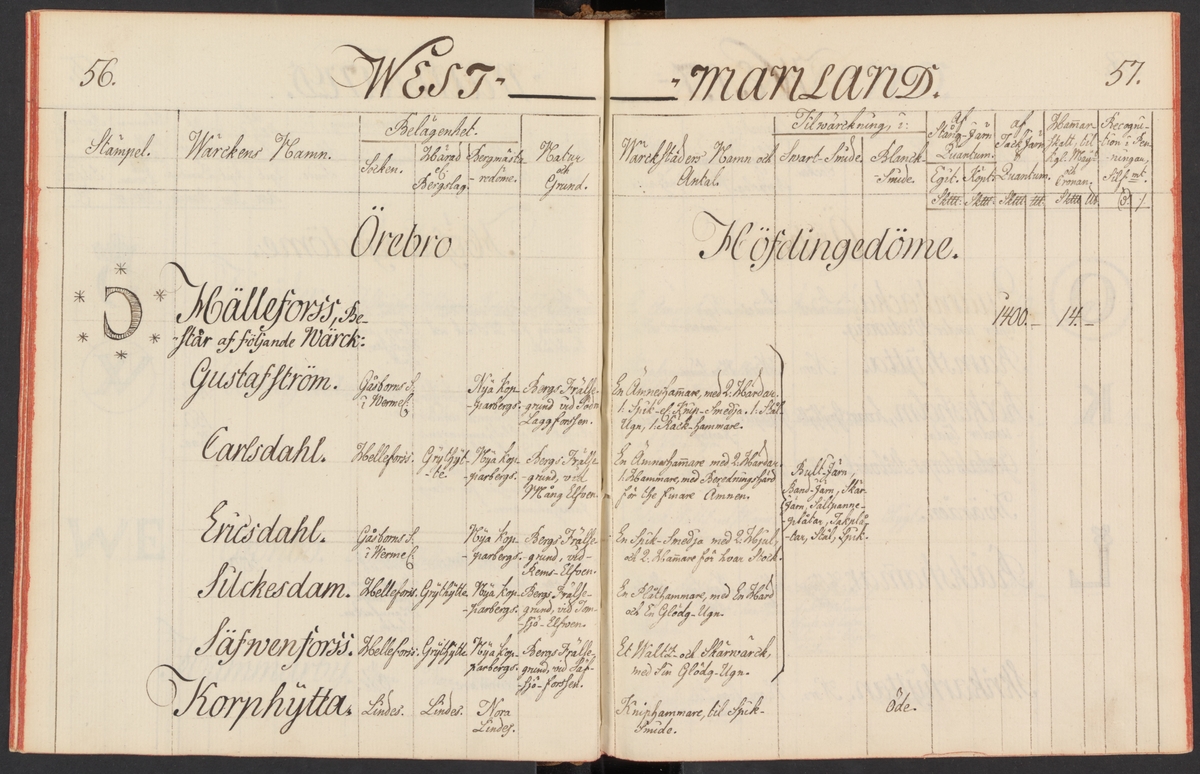 56.
WEST-
-MANLAND.
57.
Stämpel.
Wärckens Namn.
Belägenhet.
Socken.
Härad
&
Bergslag.
Bergmästa-
redöme.
Natur
och
Grund.
Wärckstäders Namn och
Antal.
Tilwärckning, i:
Svart-Smide.
Blanck
-Smide.
af
Stång-Järn
Quantum.
Eget. Köpt.
Sk℔t. Sk℔t.
af
Tack-Järn
Quantum.
Sk℔t.
Hamar-
Skatt, til
Kgl. Maj:t
och
Cronan.
Sk℔t.
Recogni-
tion i Pen-
ningau,
Silf.mt.
Örebro
Höfdingedöme.
Hälleforss, Be-
-står af följande Wärck:
1400.-
14.-
Gustafström.
Gåsborns S.
i Wermel.
Nya Kop-
-parbergs.
Bergs Frälse-
grund vid Söd.
Laggforssen.
En Ämneshamare, med 2. Härdar.
1. Spik-och Knip-Smedja. 1. Stål
Ugn, 1. Räck-hammare.
Carlsdahl.
Helleforss.
Grythyt-
-te.
Nya Kop-
-parbergs.
Bergs Frälse-
-grund, vid
Mång Elfven.
En Ämneshamare med 2. Härdar.
1. Hammare, med Beredningshärd
för the finare Ämnen.
Bult-Järn,
Band-Järn, Skär-
-Järn, Saltpanne-
-plåtar, Takplå-
-tar, Stål, Spik.
Ericsdahl.
Gåsborns S.
i Wermel.
Nya Kop-
-parbergs.
Bergs Frälse-
grund, vid
Rems-Elfven.
En Spik-Smedja med 2. Hjul,
och 2. Hamare för hvar Stock.
Silckesdam.
Helleforss.
Grythytte
Nya Kop-
-parbergs.
Bergs Frälse-
grund, vid Som-
-sjö-Elfven.
En Plåthammare, med En Härd
och En Glödg-Ugn.
Säfwenforss.
Helleforss.
Grythytte
Nya Kop-
-parbergs.
Bergs Frälse-
grund, vid Säf-
-sjö-forssen.
Et Waltz- och Skärwärck,
med Sin Glödg-Ugn.
Korphyttta.
Lindes.
Lindes.
Nora
Lindes.
Kniphammare, til Spik-
Smide.
Öde.